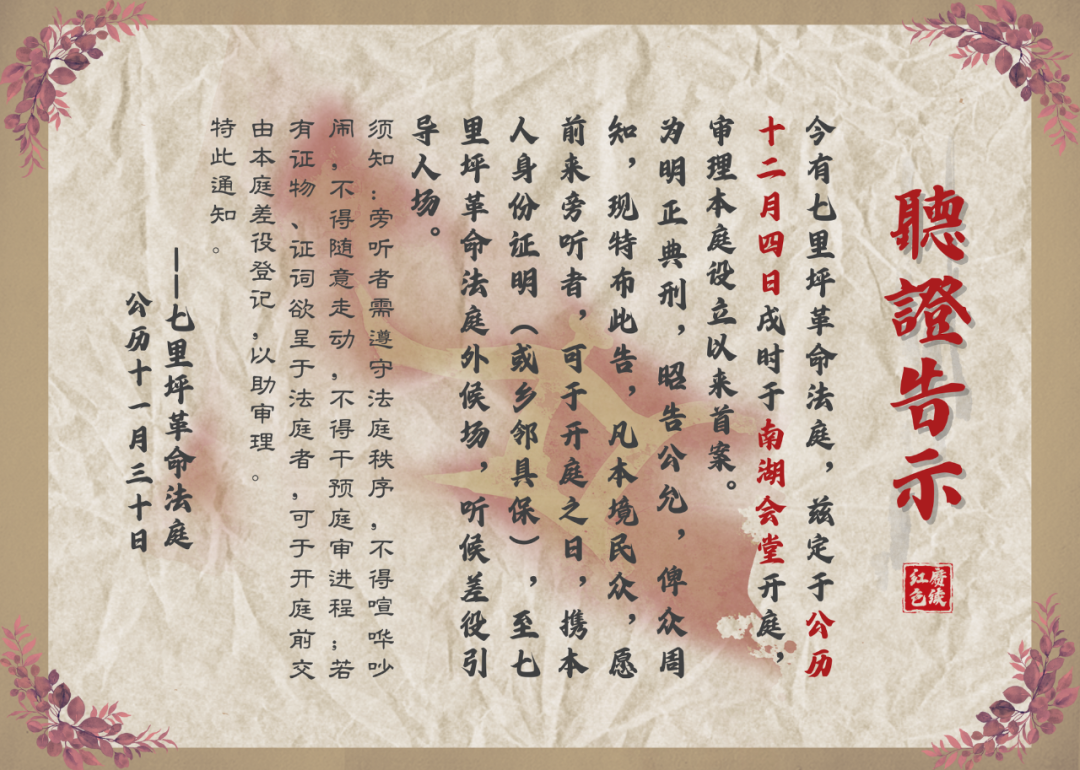 聽證告示
赓续
红色
今有七里坪革命法庭，兹定于公历
十二月四日戌时于南湖会堂开庭，
审理本庭设立以来首案。
为明正典刑，昭告公允，俾众周
知，现特布此告，凡本境民众，愿
前来旁听者，可于开庭之日，携本
人身份证明（或乡邻具保），至七
里坪革命法庭外候场，听候差役引
导人场。
须知：旁听者需遵守法庭秩序，不得喧哗吵
闹，不得随意走动，不得干预庭审进程；若
有证物、证词欲呈于法庭者，可于开庭前交
由本庭差役登记，以助审理。
特此通知。
——七里坪革命法庭
公历十一月三十日